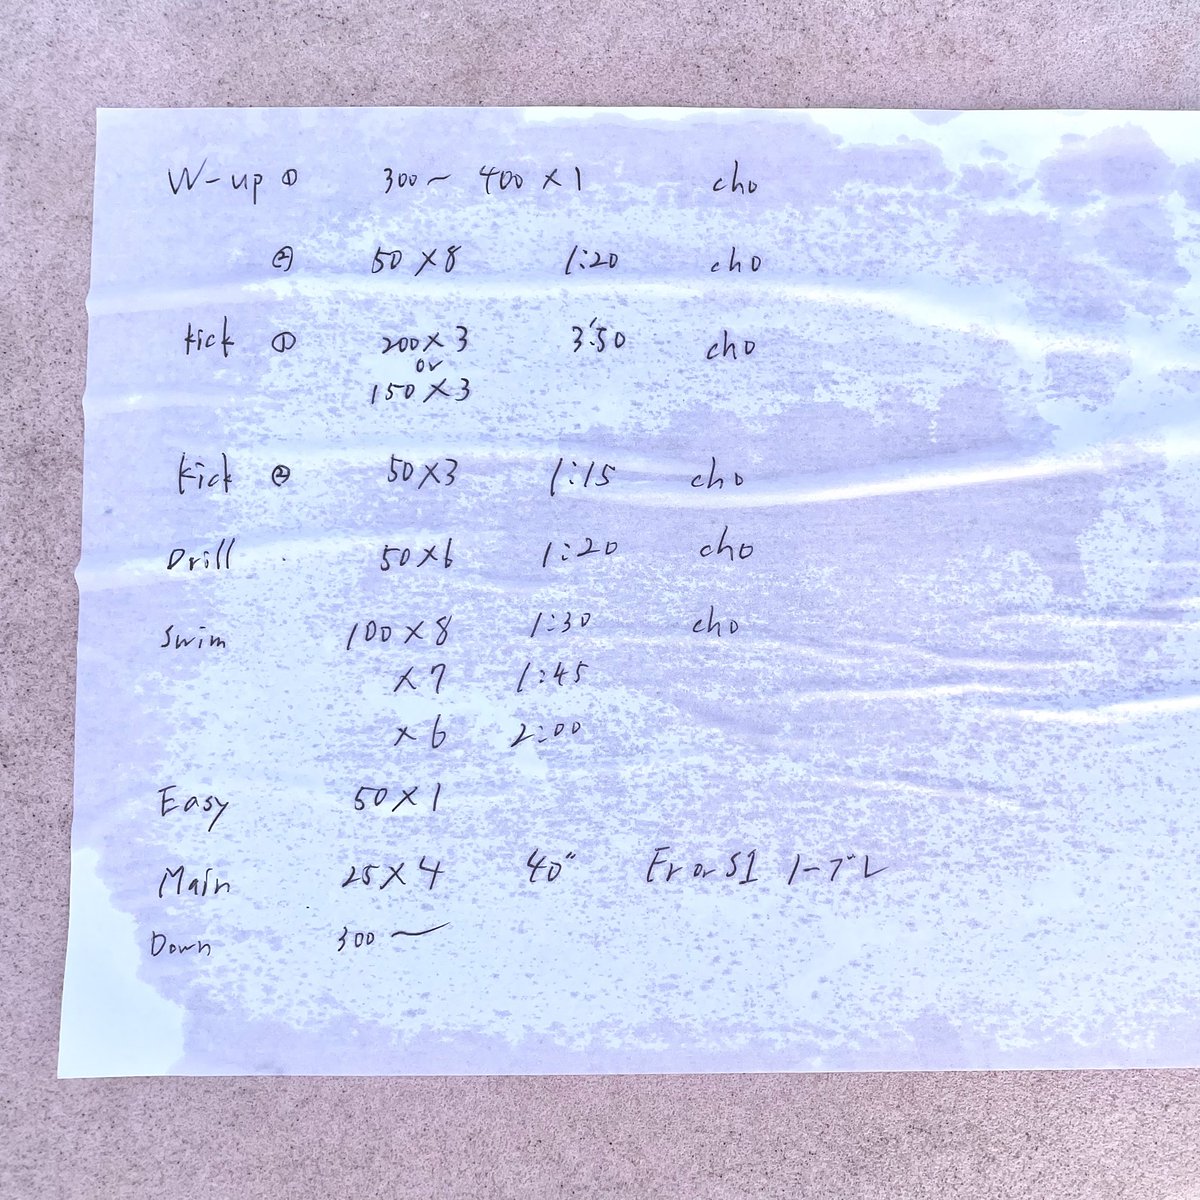 W-up ① 300~400×1 cho
② 50×8 1:20 cho
kick ① 200×3 3:50 cho
or
150×3
kick ② 50×3 1:15 cho
Drill 50×6 1:20 cho
Swim 100×8 1:30 cho
×7 1:45
×6 2:00
Easy 50×1
Main 25×4 40" Fr or S1 ノーブレ
Down 300~